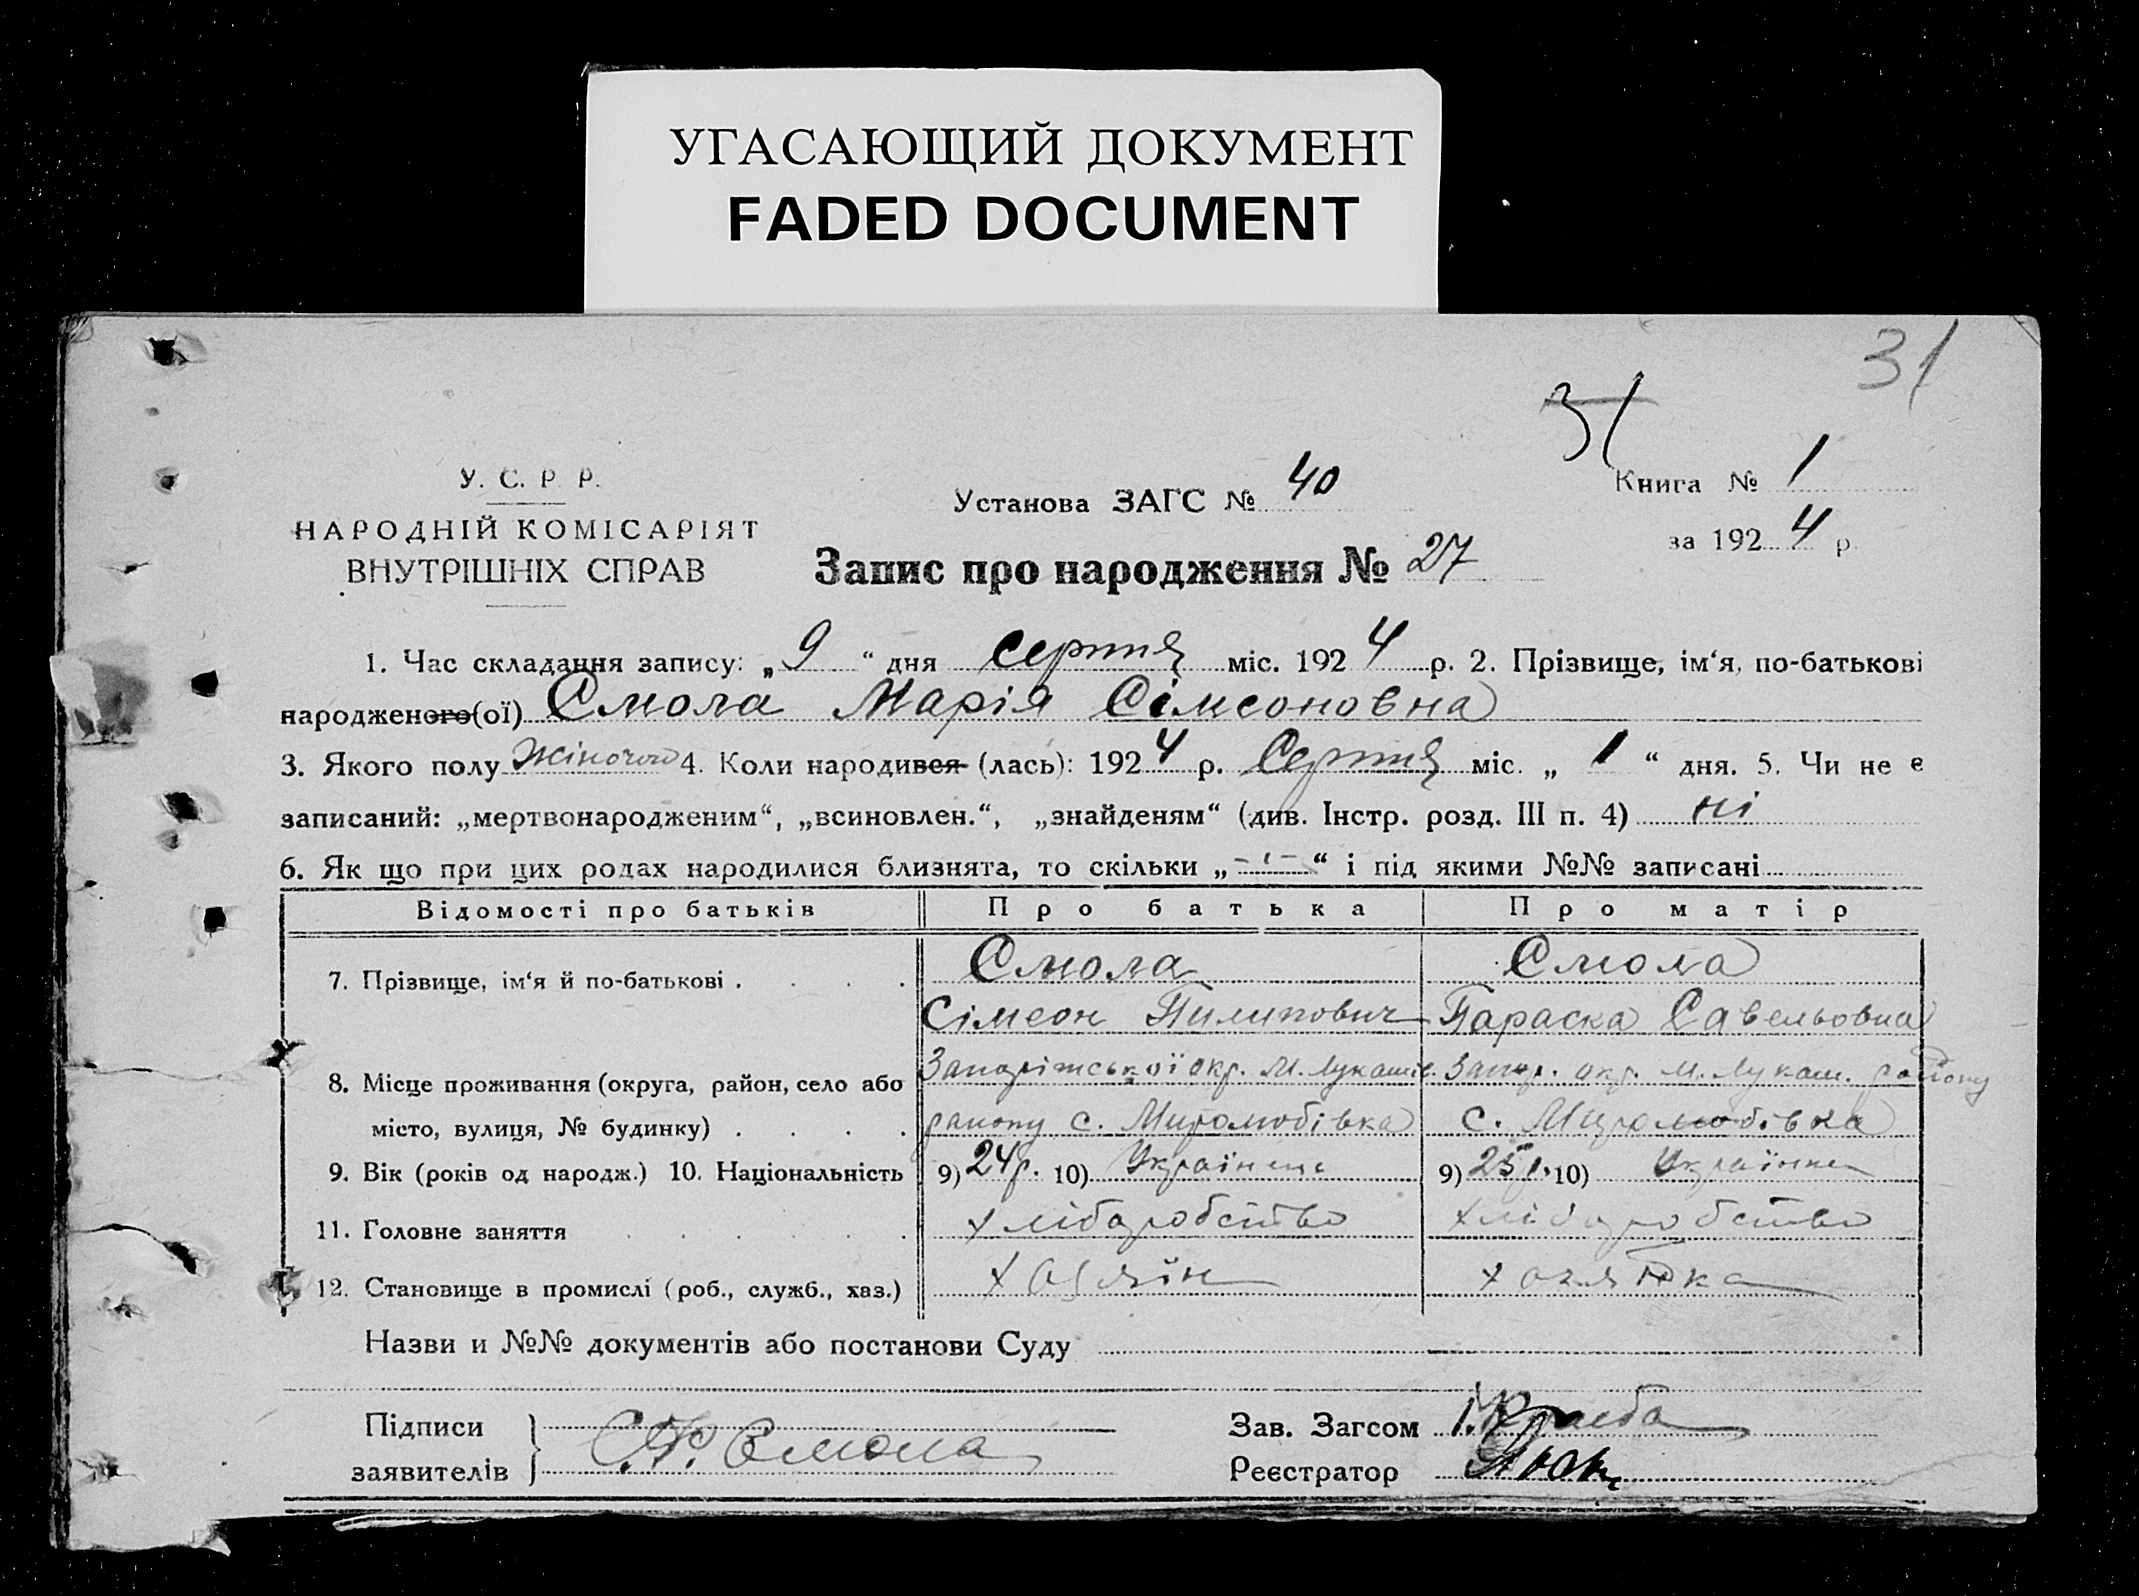 УГАСАЮЩИЙ ДОКУМЕНТ
FADED DOCUMENT
31
31
У. С. Р. Р.
НАРОДНІЙ КОМІСАРІЯТ
ВНУТРІШНІХ СПРАВ
Установа ЗАГС № 40
Книга № 1
за 1924 р.
Запис про народження № 27
1. Час складання запису: „9“ дня серпня міс. 1924 р. 2. Прізвище, ім‘я, по-батькові
народженого(ої) Смола Марія Сімеоновна
3. Якого полу жіночого 4. Коли народився (лась): 1924 р. Серпня міс. „1“ дня. 5. Чи не є
записаний: „мертвонародженим“, „всиновлен.“, „знайденям“ (див. Інстр. розд. III п. 4) ні
6. Як що при цих родах народилися близнята, то скільки „-“-“ і під якими №№ записані
Відомості про батьків Про батька Про матір
7. Прізвище, ім‘я й по-батькові . . . . Смола Смола
Сімеон Пилипович Параска Савельовна
8. Місце проживання (округа, район, село або Запоріжської окр. М. Лукашів. Запор. окр. М. Лукаш. району
місто, вулиця, № будинку) . . . . району с. Миролюбівка с. Миролюбівка
9. Вік (років од народж.) 10. Національність 9) 24 р. 10) Українець 9) 25 р. 10) Українка
11. Головне заняття . . . . . . хліборобство хліборобство
12. Становище в промислі (роб., служб., хаз.) хозяїн хозяйка
Назви и №№ документів або постанови Суду
Підписи
заявителів } Смола
Зав. Загсом
Реєстратор